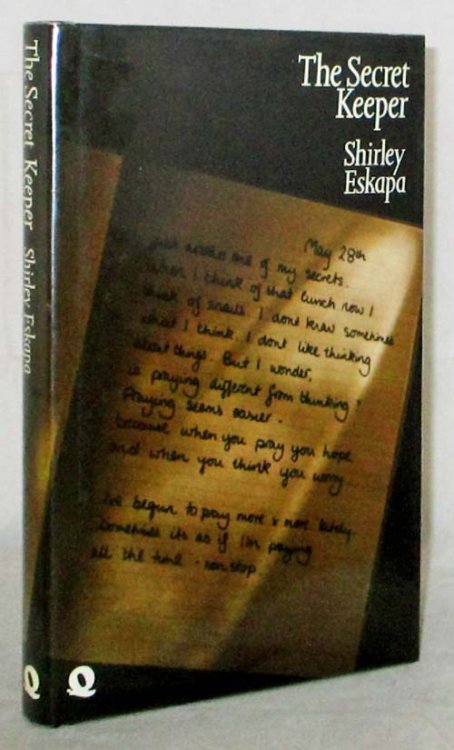 The Secret
Keeper
Shirley
Eskapa
May 28th
just another one of my secrets.
when I think of that lunch now I
think of snails. I dont know sometimes
what I think. I dont like thinking
about things. But I wonder,
is praying different from thinking?
Praying seems easier.
because when you pray you hope
and when you think you worry
I've begun to pray more & more lately.
Sometimes its as if I'm praying
all the time - non stop
The Secret Keeper Shirley Eskapa
Q
Q